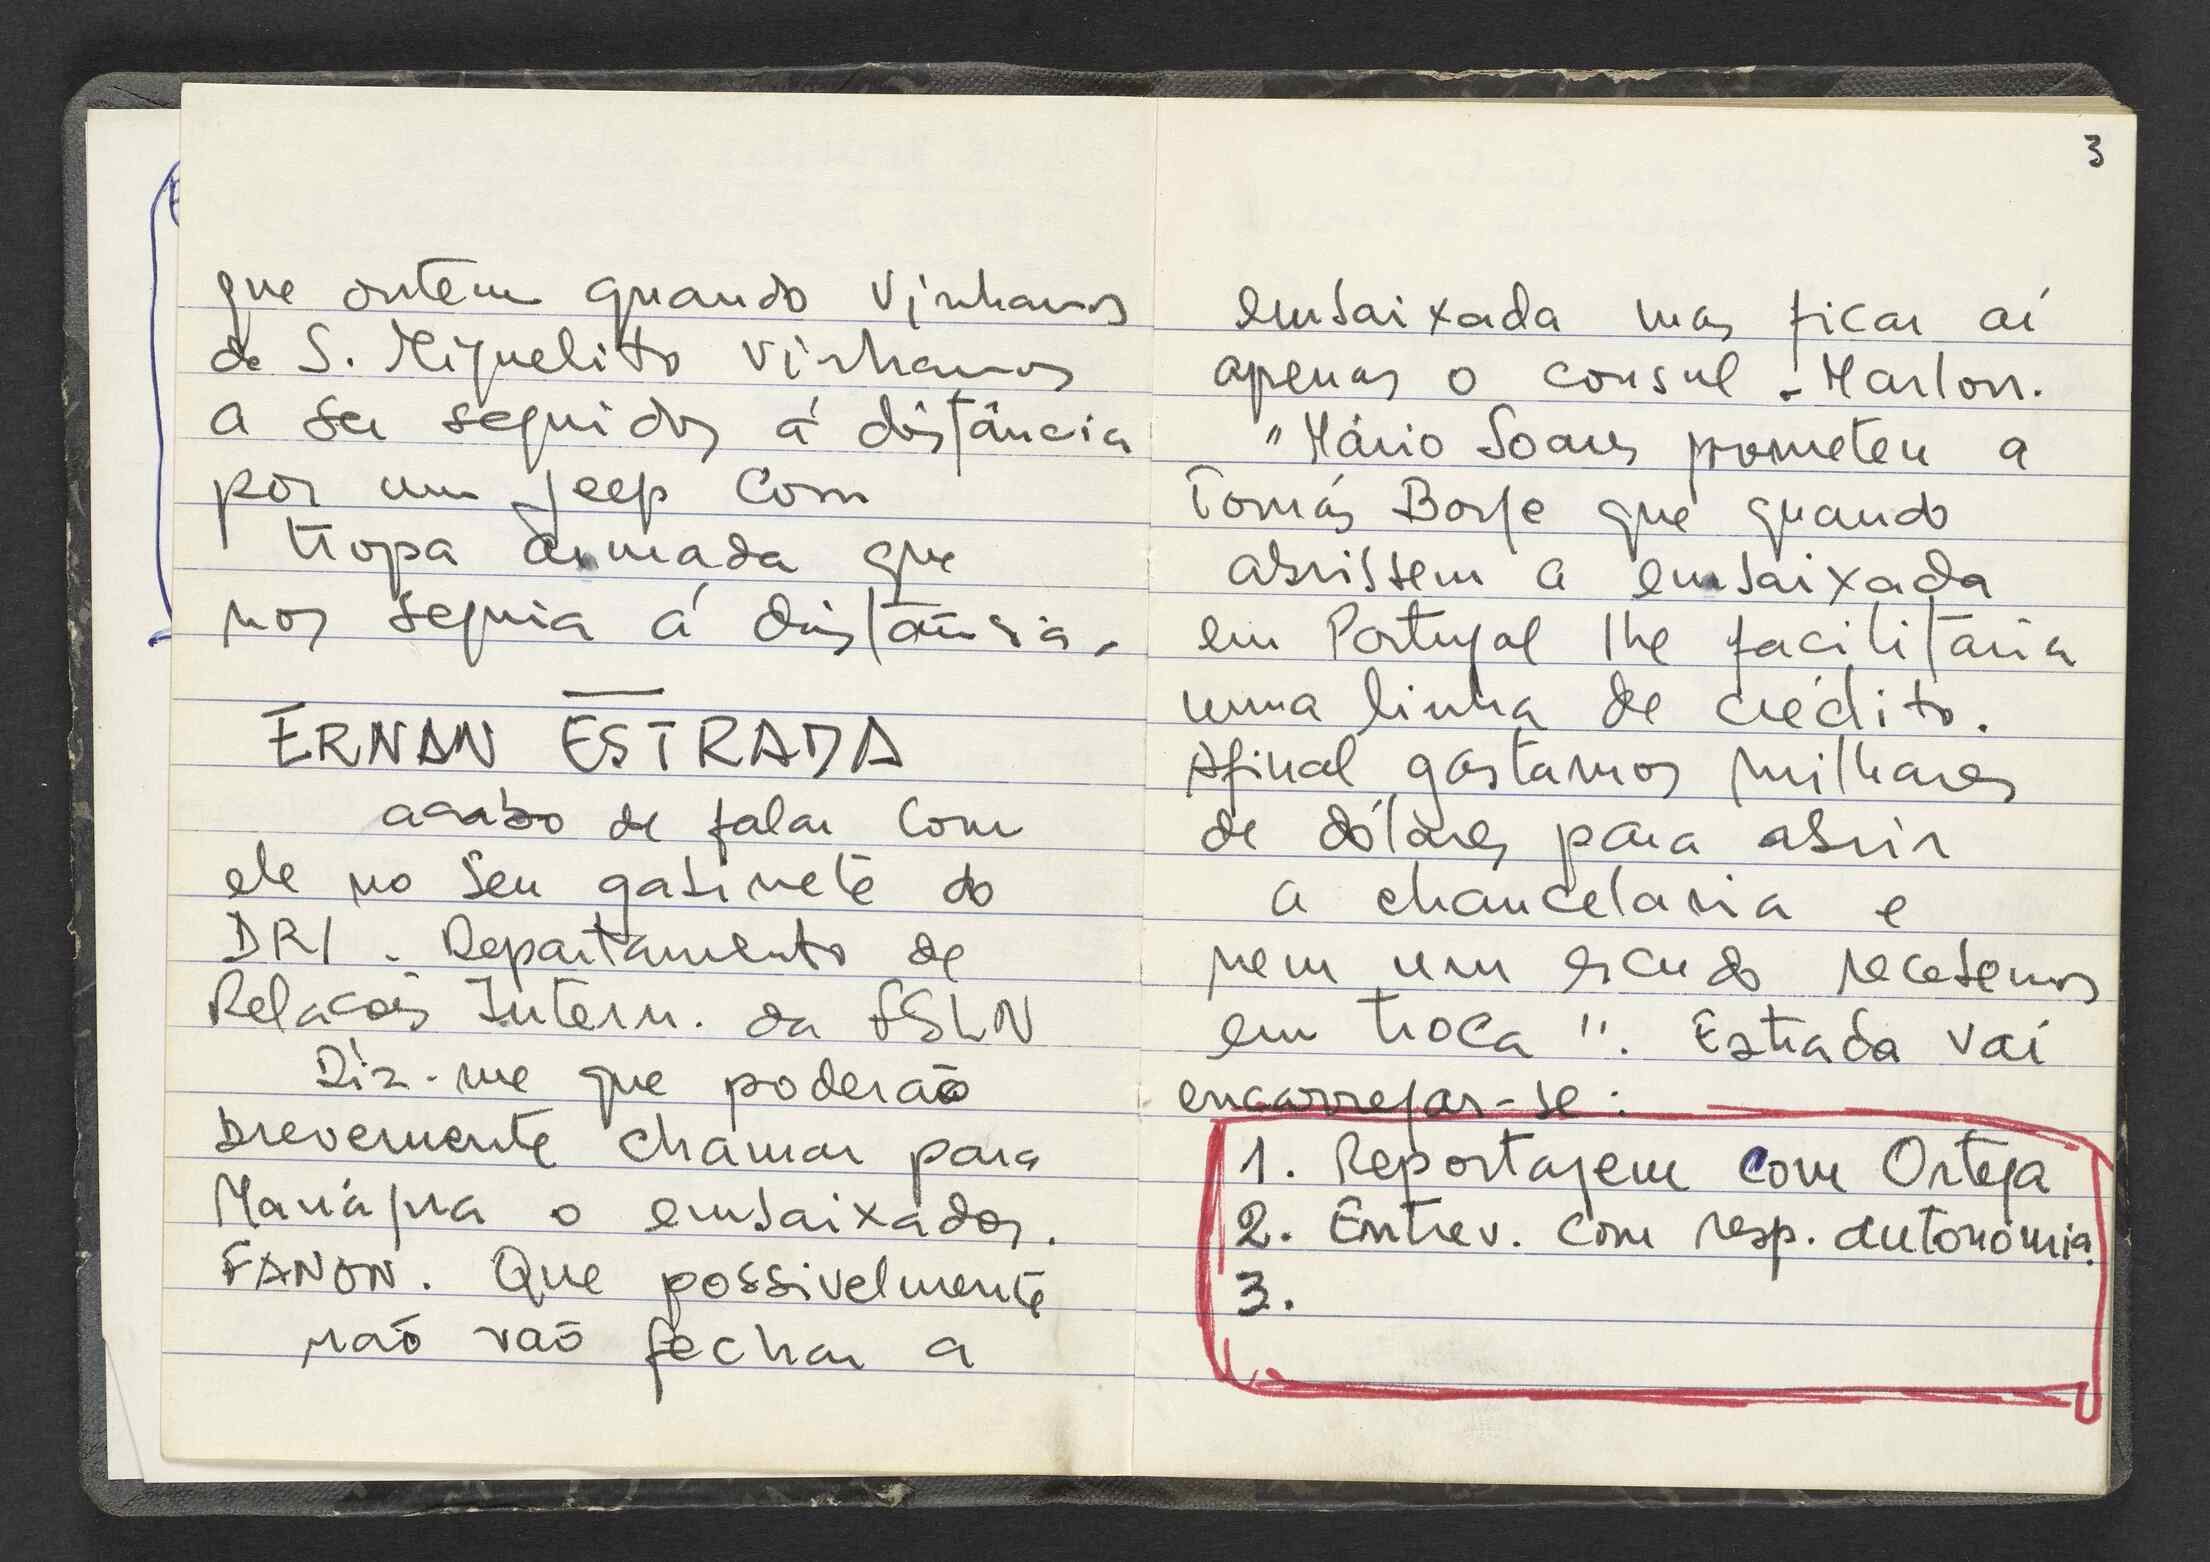 que ontem quando vinhamos
de S. Miguelito vinhamos
a ser seguidos á distância
por um jeep com
tropa armada que
nos seguia á distância.
ERNAN ESTRADA
acabo de falar com
ele no seu gabinete do
DRI - Departamento de
Relacoês Intern. da FSLN
Diz-me que poderaõ
brevemente chamar para
Manágua o embaixador.
FANON. Que possivelmente
naõ vaõ fechar a
3
embaixada mas ficar aí
apenas o consul - Marlon.
"Mário Soares prometeu a
Tomás Borge que quando
abrissem a embaixada
em Portugal lhe facilitaria
uma linha de crédito.
Afinal gastamos milhares
de dólares para abrir
a chancelaria e
nem um escudo recebemos
em troca". Estrada vai
encarregar-se:
1. Reportagem com Ortega
2. Entrev. com resp. autonómia.
3.